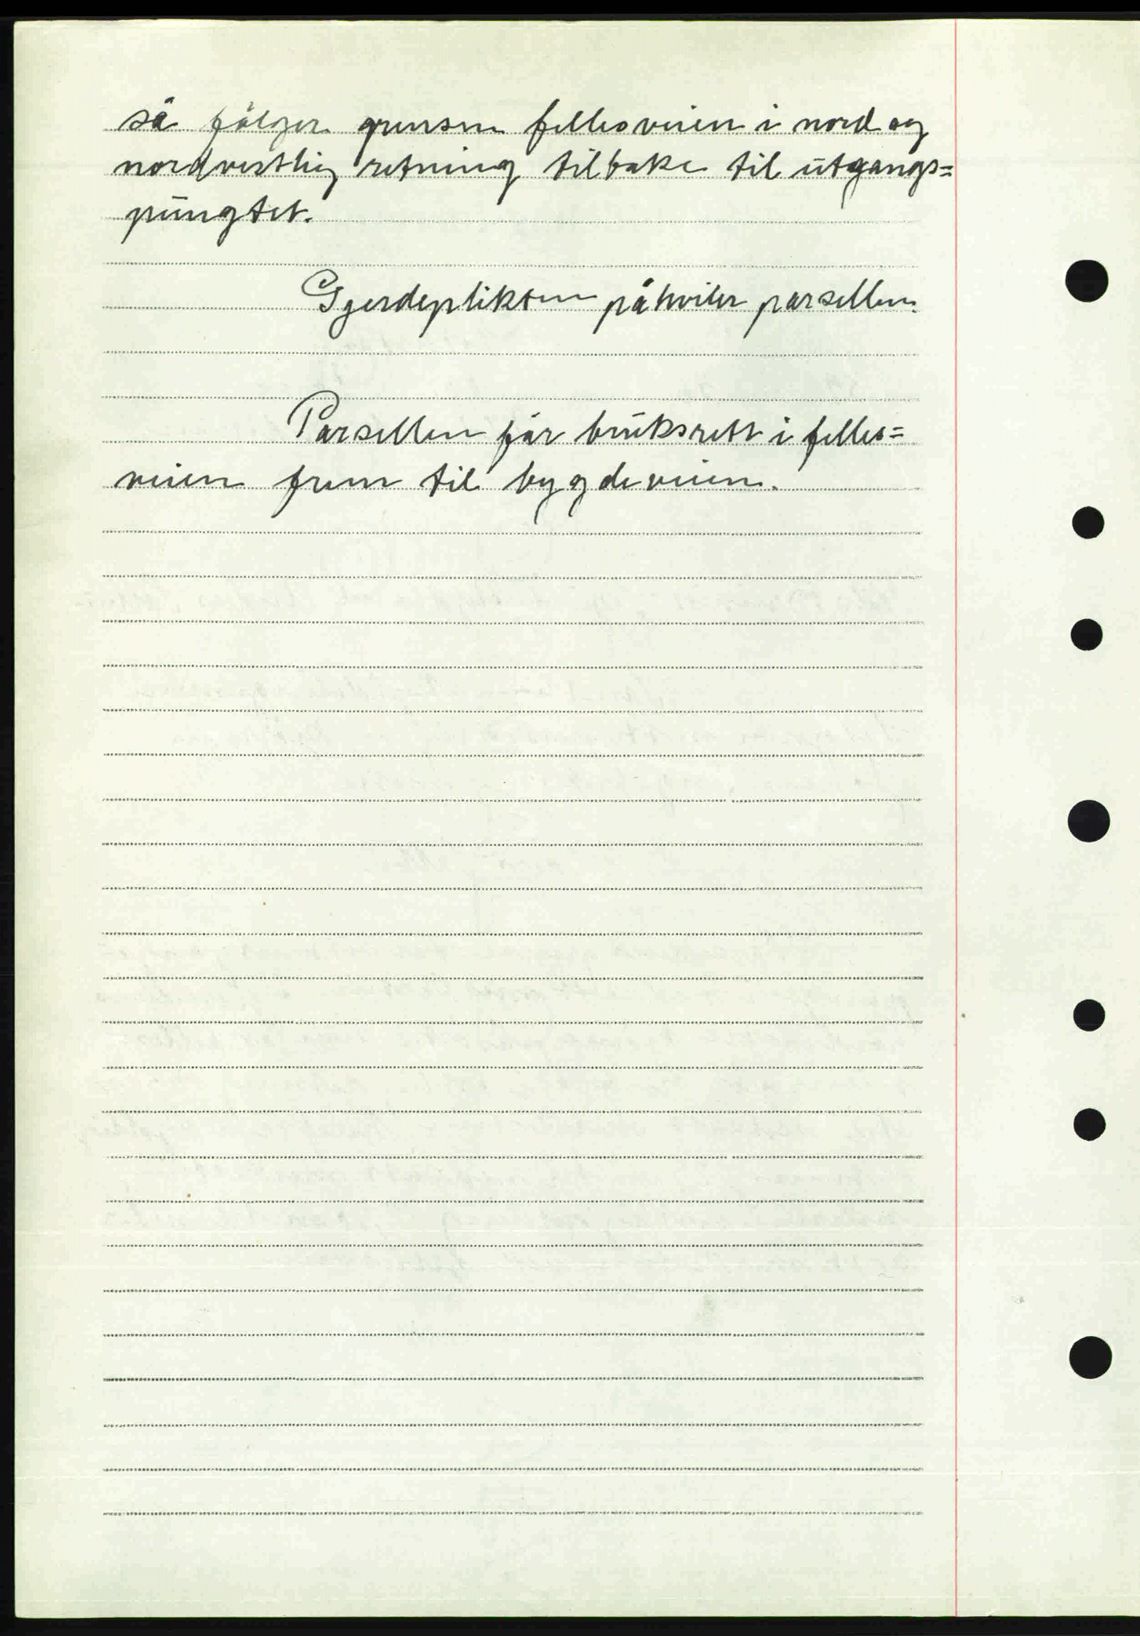 så følger grensen fellesveien i nord og
nordvestlig retning tilbake til utgangs=
pungtet.
Gjerdeplikten påhviler parsellen.
Parsellen får bruksrett i felles=
veien frem til bygdeveien.